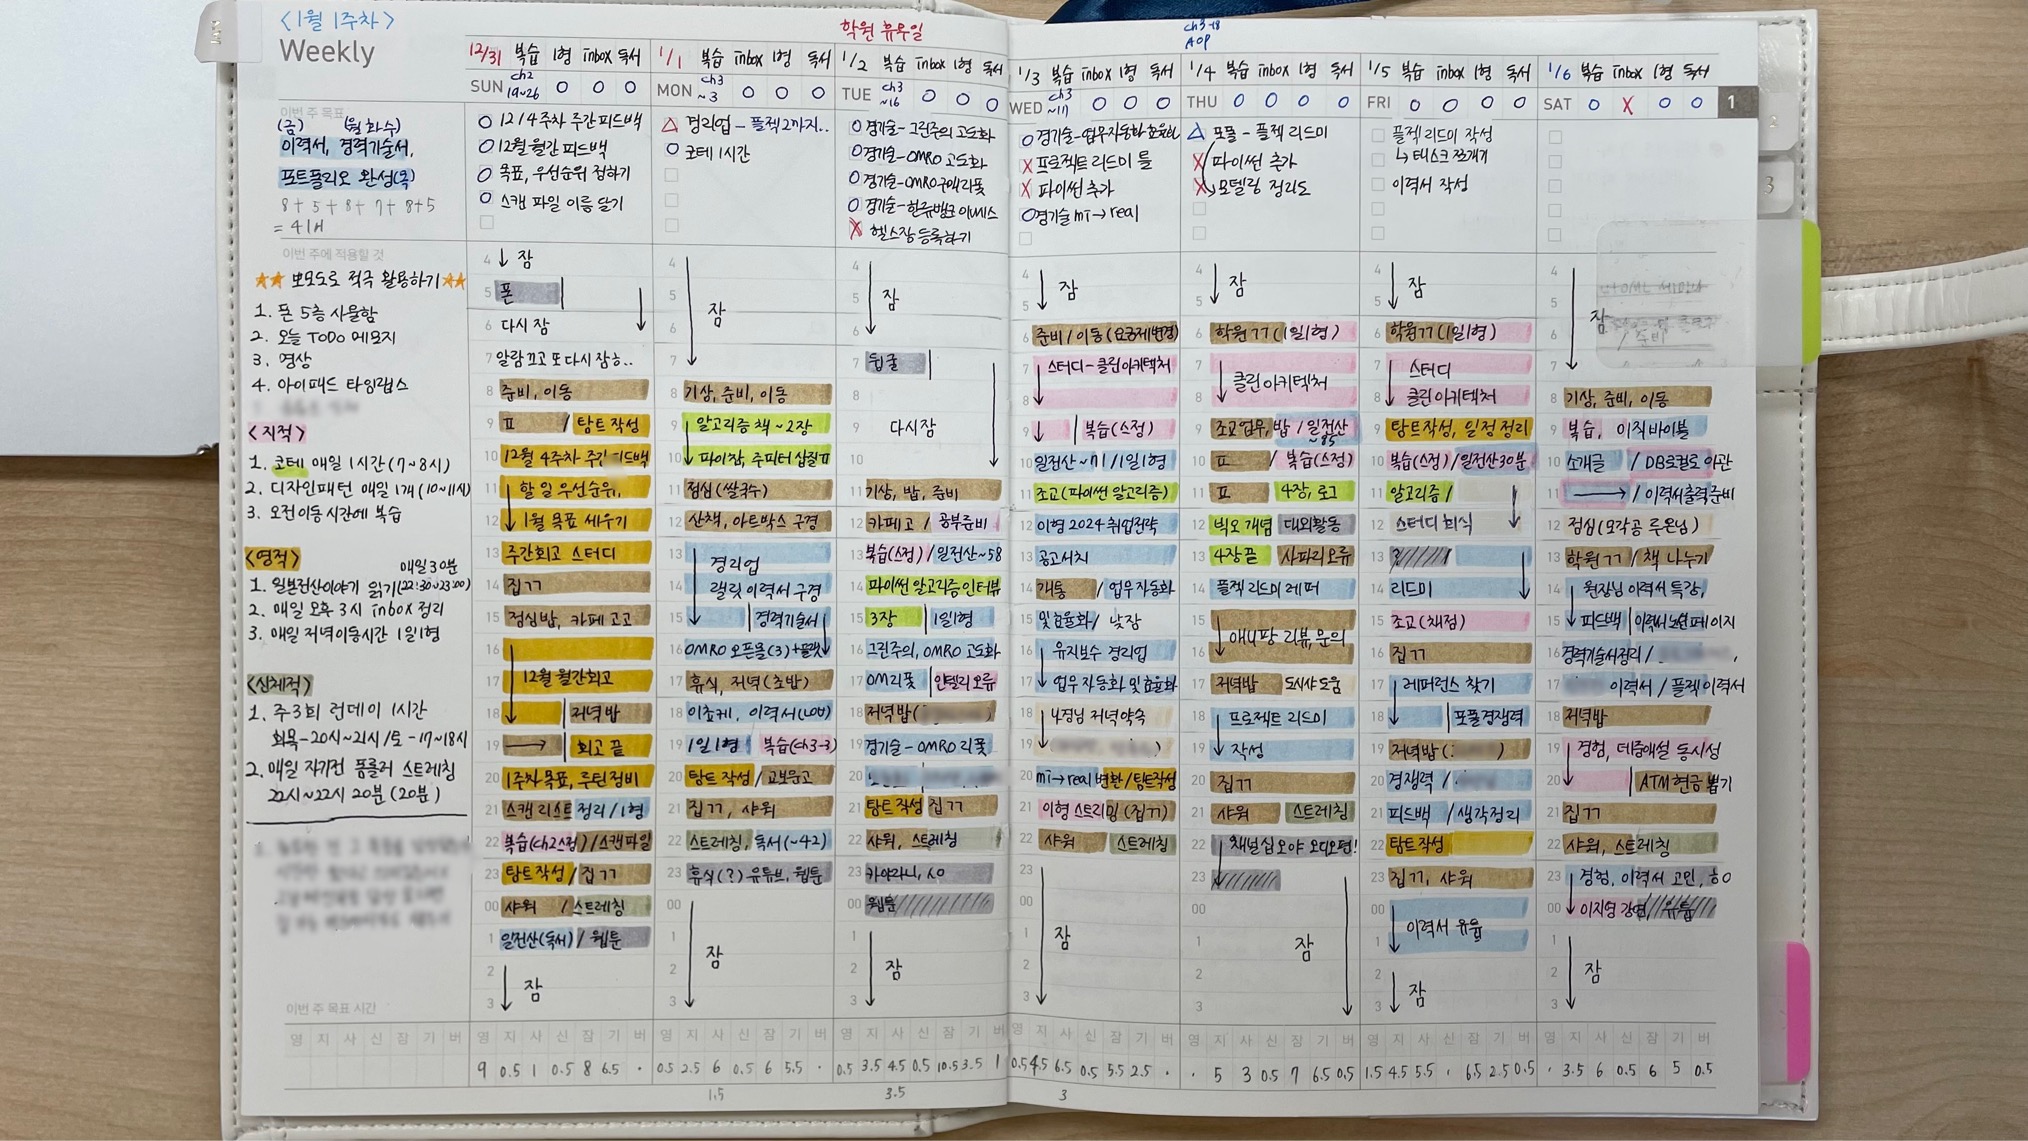 <1월 1주차>
Weekly
학원 휴무일
ch3-18
AOP
12/31 복습 1형 inbox 독서
SUN ch2 19~26 O O O
1/1 복습 inbox 1형 독서
MON ch3 ~3 O O O
1/2 복습 inbox 1형 독서
TUE ch3 ~16 O O O
1/3 복습 inbox 1형 독서
WED ch3 ~17 O O O
1/4 복습 inbox 1형 독서
THU O O O O
1/5 복습 inbox 1형 독서
FRI O O O O
1/6 복습 inbox 1형 독서
SAT O X O O
1
2
3
이번 주 목표
(금) (월화수)
이력서, 경력기술서,
포트폴리오 완성(목)
8+5+8+7+8+5
=41H
이번 주에 적용할 것
★★ 뽀모도로 적극 활용하기 ★★
1. 폰 5층 사물함
2. 오늘 ToDo 메모지
3. 명상
4. 아이패드 타임랩스
<지적>
1. 코테 매일 1시간 (7~8시)
2. 디자인패턴 매일 1개 (10~11시)
3. 오전이동시간에 복습
<영적>
매일 30분
1. 일본전산이야기 읽기(22:30~23:00)
2. 매일 오후 3시 inbox 정리
3. 매일 저녁이동시간 1일1형
<신체적>
1. 주3회 런데이 1시간
화목-20시~21시/토-17~18시
2. 매일 자기전 폼롤러 스트레칭
22시~22시 20분 (20분)
이번 주 목표 시간
영 지 사 신 잠 기 버
O 12/4주차 주간피드백
O 12월 월간 피드백
O 목표, 우선순위 정하기
O 스캔 파일 이름 달기
4 ↓ 잠
5 폰
6 다시 잠
7 알람끄고 또 다시 잠ㅎ..
8 준비, 이동
9 ㅍ / 탐트 작성
10 12월 4주차 주간 피드백
11 할 일 우선순위,
12 1월 목표 세우기
13 주간회고 스터디
14 집ㄱㄱ
15 점심밥, 카페 고고
16
17 12월 월간회고
18 저녁밥
19 → 회고 끝
20 1주차 목표, 루틴정비
21 스캔 리스트 정리 / 1형
22 복습(ch2스정) / 스캔파일
23 탐트작성 / 집ㄱㄱ
00 샤워 / 스트레칭
1 일전산(독서) / 웹툰
2 잠
3
영 지 사 신 잠 기 버
9 0.5 1 0.5 8 6.5 ·
△ 경리업 - 플젝2까지..
O 코테 1시간
4
5 잠
6
7
8 기상, 준비, 이동
9 알고리즘 책 ~2장
10 파이참, 주피터 삽질ㅠ
11 점심 (쌀국수)
12 산책, 아트박스 구경
13 경리업
14 랠릿 이력서 구경
15 경력기술서
16 OMRO 오픈몰(3)+플젝
17 휴식, 저녁 (초밥)
18 이쵸케, 이력서
19 1일1형 복습(ch3-3)
20 탐트 작성 / 교보문고
21 집ㄱㄱ, 샤워
22 스트레칭, 독서(~42)
23 휴식(?) 유튜브, 웹툰
00
1 잠
2
3
영 지 사 신 잠 기 버
0.5 2.5 6 0.5 6 5.5 ·
1.5
O 경기술-그린주의 고도화
O 경기술-OMRO 고도화
O 경기술-OMRO구매리폿
O 경기술-한류뱅크
X 헬스장 등록하기
4
5 잠
6
7 뒹굴
8
9 다시잠
10
11 기상, 밥, 준비
12 카페고 / 공부준비
13 복습(스정) / 일전산~58
14 파이썬 알고리즘 인터뷰
15 3장 1일1형
16 그린주의, OMRO 고도화
17 OM리폿 인텔리 오류
18 저녁밥(
19 경기술-OMRO 리폿
20
21 탐트작성 집ㄱㄱ
22 샤워, 스트레칭
23 카야라니,
00 웹툰
1
2 잠
3
영 지 사 신 잠 기 버
0.5 3.5 4.5 0.5 10.5 3.5 1
3.5
O 경기술-업무자동화 효율화
X 프로젝트 리드미 틀
X 파이썬 추가
O 경기술 mi→real
4 잠
5
6 준비 / 이동 (요금제변경)
7 스터디-클린아키텍처
8
9 복습(스정)
10 일전산~71 / 1일1형
11 조교(파이썬 알고리즘)
12 이형 2024 취업전략
13 공고서치
14 개통 / 업무자동화
15 및효율화 / 낮잠
16 유지보수 경리업
17 업무자동화 및 효율화
18 4장님 저녁약속
19
20 mi→real 변환/탐트작성
21 이형 스트리밍 (집ㄱㄱ)
22 샤워 스트레칭
23
00
1 잠
2
3
영 지 사 신 잠 기 버
0.5 4.5 6.5 0.5 5.5 2.5 ·
3
△ 포폴 - 플젝 리드미
X 파이썬 추가
X 모델링 정리도
4 잠
5
6 학원ㄱㄱ(1일1형)
7 클린아키텍처
8
9 조교업무, 밥 / 일전산 ~85
10 ㅍ / 복습(스정)
11 ㅍ 4장, 로그
12 빅오 개념 대외활동
13 4장끝 사파리오류
14 플젝 리드미 레퍼
15 애니팡 리뷰, 문의
16
17 저녁밥 도시샤 도움
18 프로젝트 리드미
19 작성
20 집ㄱㄱ
21 샤워 스트레칭
22 채널십오야 오디오편!
23
00
1 잠
2
3
영 지 사 신 잠 기 버
· 5 3 0.5 7 6.5 0.5
플젝 리드미 작성
↳ 테스크 쪼개기
이력서 작성
4 잠
5
6 학원ㄱㄱ(1일1형)
7 스터디
8 클린아키텍처
9 탐트작성, 일정정리
10 복습(스정) / 일전산30분
11 알고리즘 /
12 스터디 회식
13 ?
14 리드미
15 조교 (채점)
16 집ㄱㄱ
17 레퍼런스 찾기
18 포폴경쟁력
19 저녁밥(
20 경쟁력 /
21 피드백 / 생각정리
22 탐트작성
23 집ㄱㄱ, 샤워
00 이력서 유튭
1
2 잠
3
영 지 사 신 잠 기 버
1.5 4.5 5.5 · 6.5 2.5 0.5
4
5
6 잠
7
8 기상, 준비, 이동
9 복습, 이직바이블
10 소개글 / DB로컬로 이관
11 → / 이력서출력 준비
12 점심 (모각공 루온님)
13 학원ㄱㄱ / 책 나누기
14 원장님 이력서 특강,
15 피드백 이력서 노션페이지
16 경력기술서정리 /
17 이력서 / 플젝이력서
18 저녁밥
19 경험, 데증애설 동시성
20 ATM 현금 뽑기
21 집ㄱㄱ
22 샤워, 스트레칭
23 경험, 이력서 고민,
00 이지영 강연, 유튭
1
2 잠
3
영 지 사 신 잠 기 버
· 3.5 6 0.5 6 5 0.5